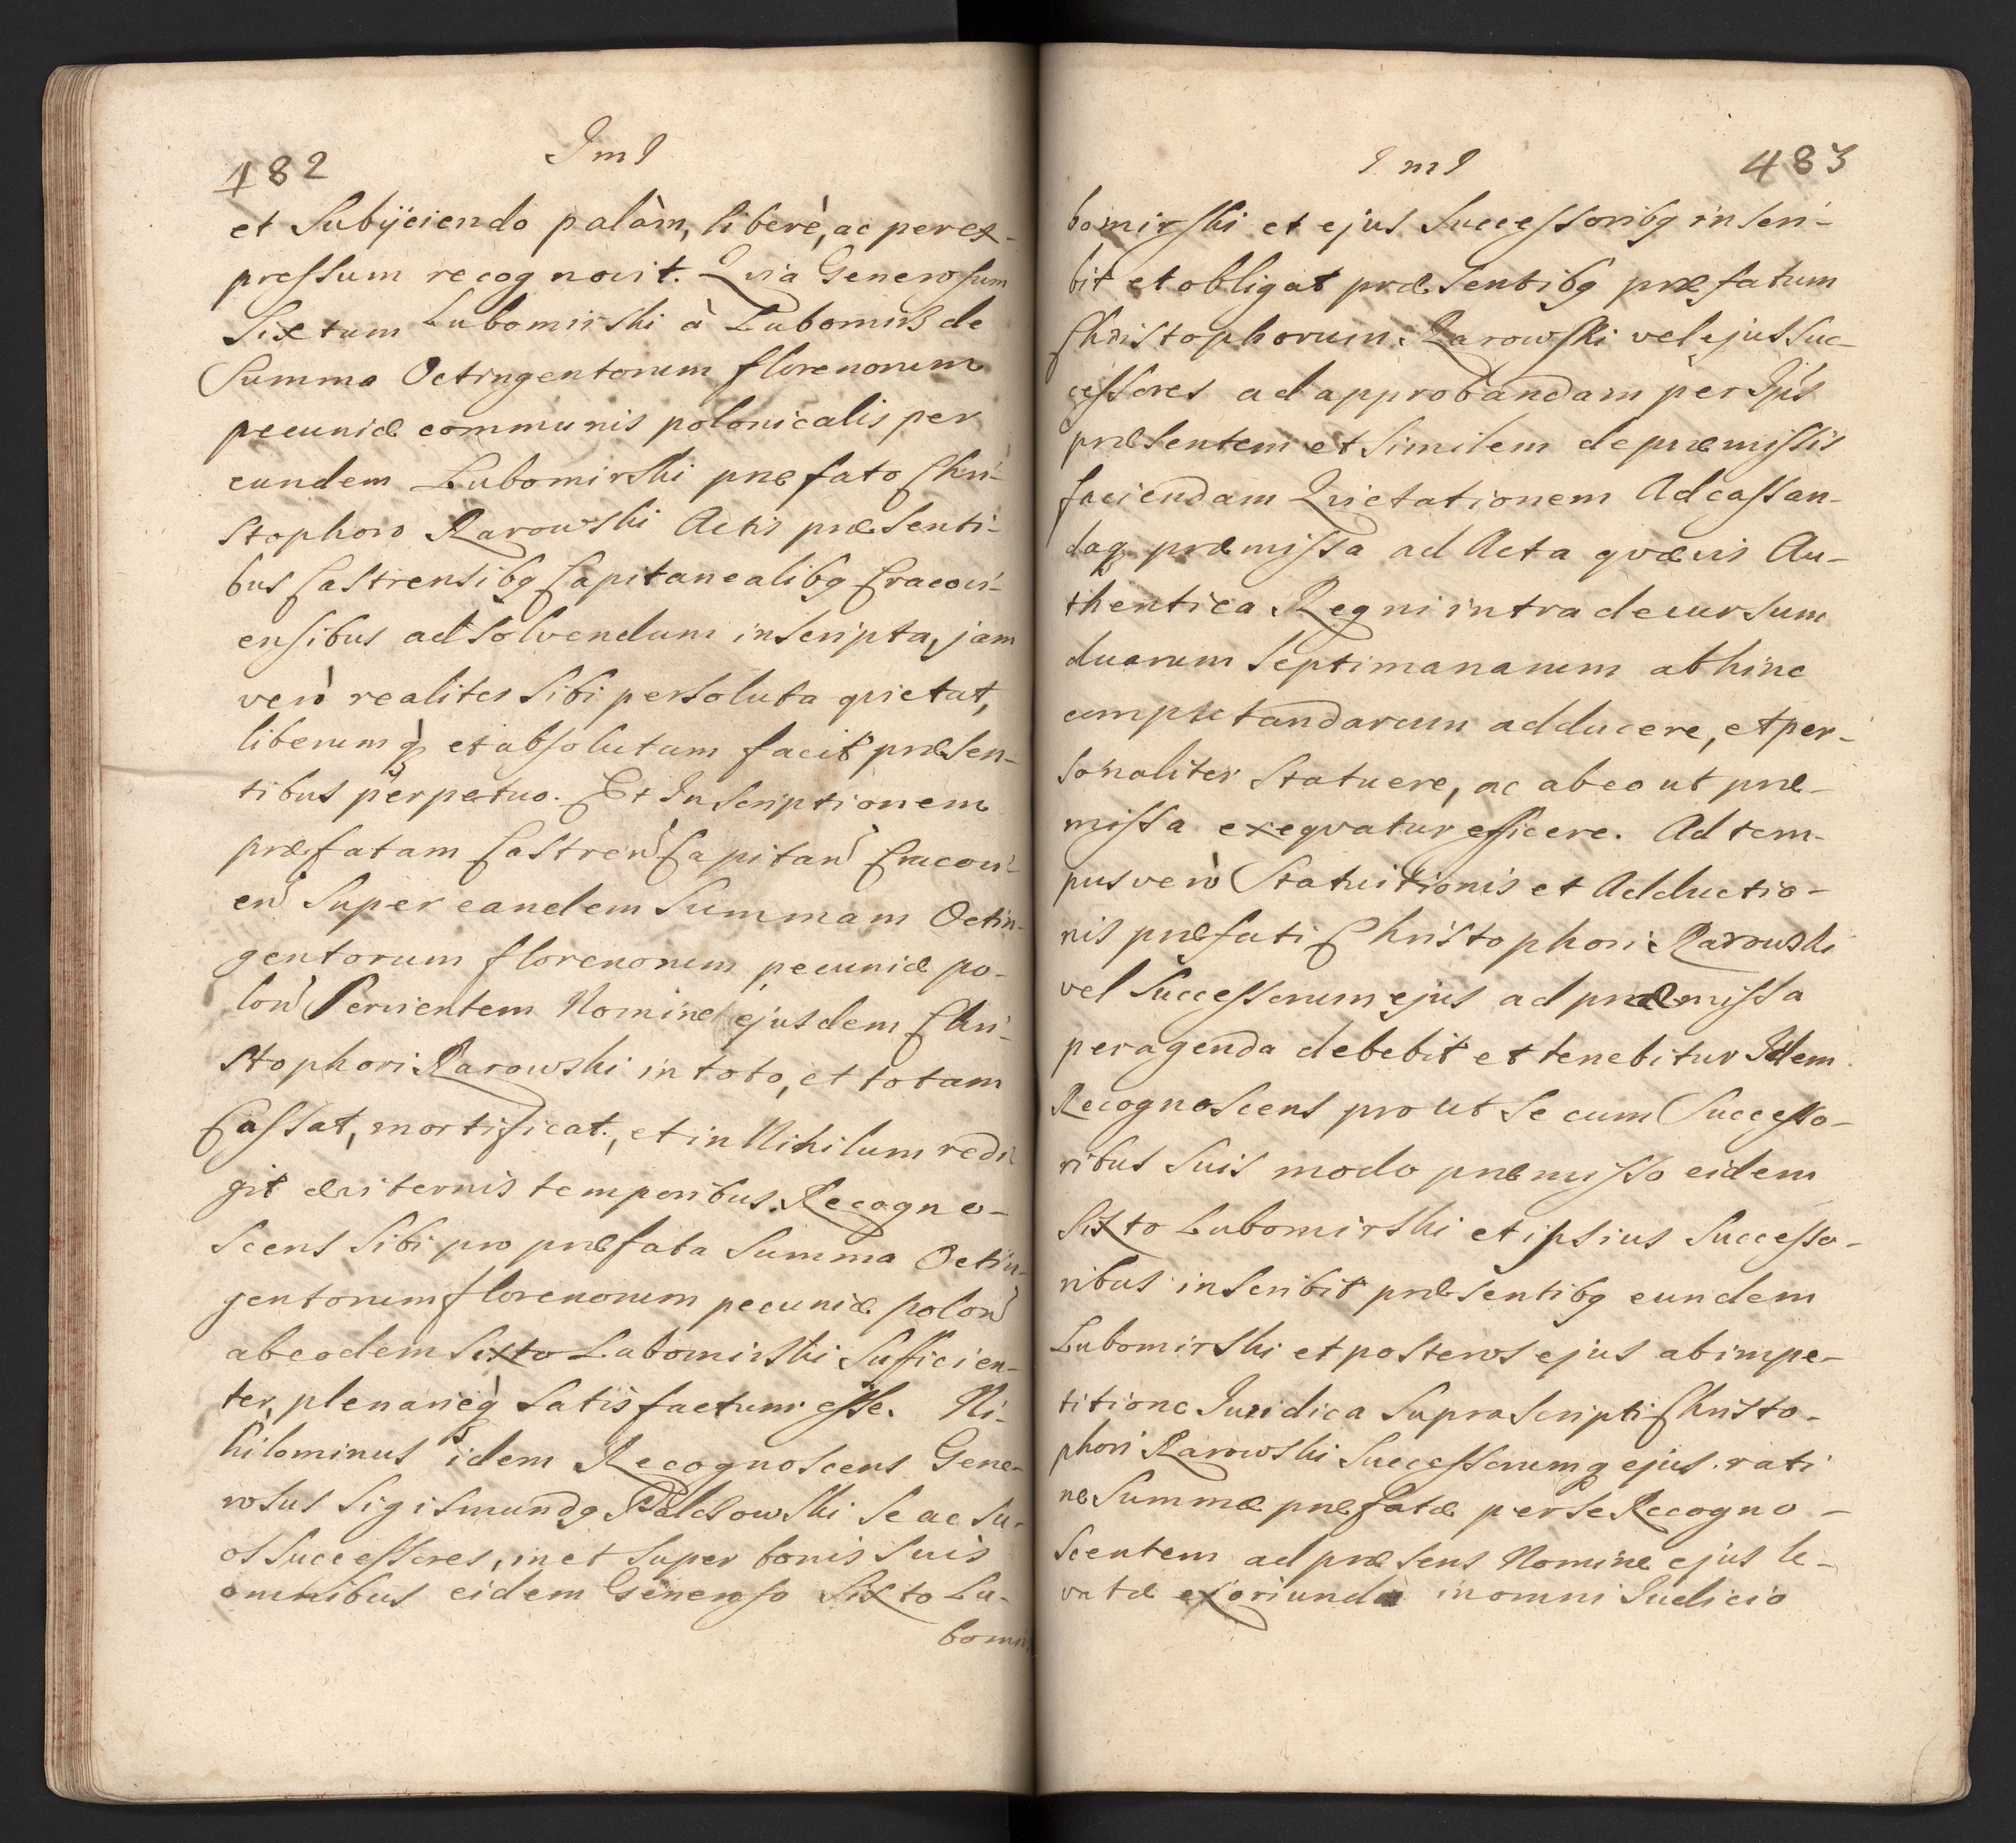 182
Im I
et Subÿciendo palàm, liberè, ac per ex-
pressum recognovit. Qvia Generosum
Sixtum Lubomirski à Lubomirz de
Summa Octingentorum florenorum
pecuniæ communis polonicalis per
eundem Lubomirski præfato Chri-
stophoro Rarowski Actis præsenti-
bus Castrensibq Capitanealibq Cracovi-
ensibus ad solvendum inscripta, jam
verò realiter Sibi persoluta qvietat,
liberumq̀ et absolutum facit præsen-
tibus perpetuo. Et Inscriptionem
præfatam Castren Capitan Cracovi-
en Super eandem Summam Octin-
gentorum florenorum pecuniæ po-
lon Servientem Nomine ejusdem Chri-
stophori Rarowski in toto, et totam
Cassat, mortificat, et in Nihilum redi
git æviternis temporibus. Recogno-
scens Sibi pro præfata Summa Octin-
gentorum florenorum pecuniæ polon
ab eodem Sixto Lubomirski Sufficien-
ter, plenarieq̀ Satisfactum esse. Ni-
hilominus idem Recognoscens Gene-
rosus Sigismundq Palczowski Se ac Su-
os Successores, in et Super bonis Suis
omnibus eidem Generoso Sixto Lu-
bomir
I m I
483
bomirski et ejus Successoribq inscri-
bit et obligat præsentibq præfatum
Christophorum Rarowski vel ejus Suc-
cessores ad approbandam per Ips
præsentem et Similem de præmissis
faciendam Qvietationem Ad cassan-
daq præmissa ad Acta qvævis Au-
thentica Regni intra decursum
duarum Septimanarum abhinc
computandarum adducere, et per-
sonaliter Statuere, ac ab eo ut præ-
missa exeqvatur efficere. Ad tem-
pus verò Statuitionis et Adductio-
nis præfati Christophori Rarowski
vel Successorum ejus ad præmissa
peragenda debebit et tenebitur Idem
Recognoscens prout Se cum Successo-
ribus Suis modo præmisso eidem
Sixto Lubomirski et ipsius Successo-
ribus inscribit præsentibq eundem
Lubomirski et posteros ejus ab impe-
titione Juridica Suprascripti Christo-
phori Rarowski Successorumq ejus rati
ne Summæ præfatæ per se Recogno-
scentem ad præsens Nomine ejus le-
vatæ exoriunda in omni Judicio